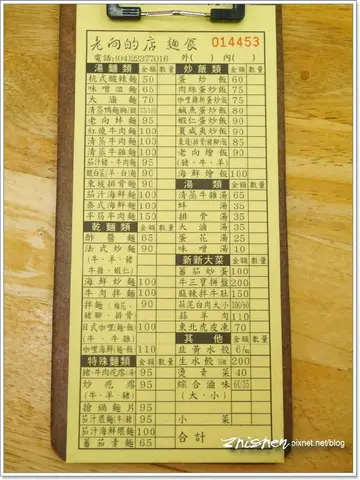 老向的店 麵食
014453
電話:(04)22377016 外( ) 內( )
湯麵類 金額 數量
桃式酸辣麵 50
味噌拉麵 65
大滷麵 70
老向蚌麵 90
紅燒牛肉麵 100
清蒸牛肉麵 100
清蒸牛雜麵 100
茄汁(豬、牛肉)麵 95
東坡排骨麵 90
茄汁海鮮麵 100
泰式海鮮麵 100
半筋半肉麵 150
乾麵類 金額 數量
酢醬麵 65
法式炒麵 90
(牛、羊、豬
、雞、蝦仁)
海鮮炒麵 100
牛肉拌麵 100
拌麵(梅花、 90
豬腳、排骨)
日式咖哩(麵、飯) 100
(牛、牛雜)
咖哩海鮮(麵、飯) 110
特殊麵類 金額 數量
豬、牛肉疙瘩(湯) 95
炒疙瘩 95
(牛、羊、豬)
搶鍋麵片 95
茄汁煨麵(牛、豬) 95
茄汁海鮮煨麵 100
蕃茄素麵 65
炒飯類 金額 數量
蛋炒飯 60
肉絲蛋炒飯 75
咖哩雞絲蛋炒飯 75
鹹魚蛋炒飯 85
蝦仁蛋炒飯 90
夏威夷炒飯 90
東坡(排骨豬腳)飯 90
老向燴飯 90
(豬、牛、羊)
海鮮燴飯 100
湯類 金額 數量
清蒸牛雜湯 65
鮮湯 35
排骨湯 35
大滷湯 35
蛋花湯 25
味噌湯 25
新新大菜 金額 數量
蕃茄炒蛋 100
牛三寶拼盤 200
麻辣拌牛肚 150
蒜泥白肉大小 100/60
蒜羊肉 110
東北虎皮凍 70
其他 金額 數量
韭黃水餃 6/粒
生水餃 200
燙青菜 40
綜合滷味 60/35
(大、小)
小菜
合計
zhishen.pixnet.net/blog